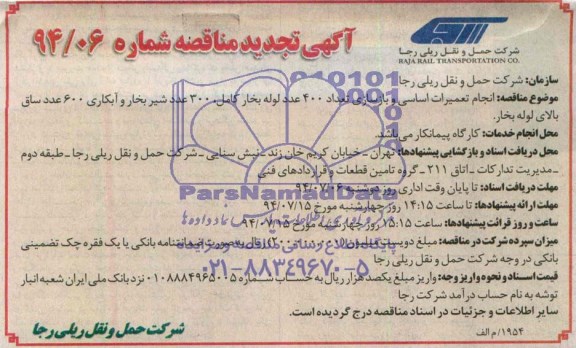 آگهی تجدید مناقصه شماره ۹۴/۰۶
شرکت حمل و نقل ریلی رجا
RAJA RAIL TRANSPORTATION CO.
سازمان: شرکت حمل و نقل ریلی رجا
موضوع مناقصه: انجام تعمیرات اساسی و بازسازی تعداد ۴۰۰ عدد لوله بخار کامل، ۳۰۰ عدد شیر بخار و آبکاری ۶۰۰ عدد ساق
بالای لوله بخار.
محل انجام خدمات: کارگاه پیمانکار می‌باشد.
محل دریافت اسناد و بازگشایی پیشنهادها: تهران ـ خیابان کریم خان زند ـ نبش سنایی ـ شرکت حمل و نقل ریلی رجا ـ طبقه دوم
ـ مدیریت تدارکات ـ اتاق ۲۱۱ ـ گروه تامین قطعات و قراردادهای فنی
مهلت دریافت اسناد: تا پایان وقت اداری روز دوشنبه ۹۴/۰۷/۰۶
مهلت ارائه پیشنهادها: تا ساعت ۱۴:۱۵ روز چهارشنبه مورخ ۹۴/۰۷/۱۵
ساعت و روز قرائت پیشنهادها: ساعت ۱۵:۱۵ روز چهارشنبه مورخ ۹۴/۰۷/۱۵
میزان سپرده شرکت در مناقصه: مبلغ دویست میلیون ریال به صورت ضمانتنامه بانکی یا یک فقره چک تضمینی
بانکی در وجه شرکت حمل و نقل ریلی رجا
قیمت اسناد و نحوه واریز وجه: واریز مبلغ یکصد هزار ریال به حساب شماره ۰۱۰۸۸۸۴۹۶۵۰۰۵ نزد بانک ملی ایران شعبه انبار
توشه به نام حساب درآمد شرکت رجا
سایر اطلاعات و جزئیات در اسناد مناقصه درج گردیده است.
۱۹۵۴/م الف
شرکت حمل و نقل ریلی رجا
ParsNamadData
۰۲۱-۸۸۳۴۹۶۷۰-۵